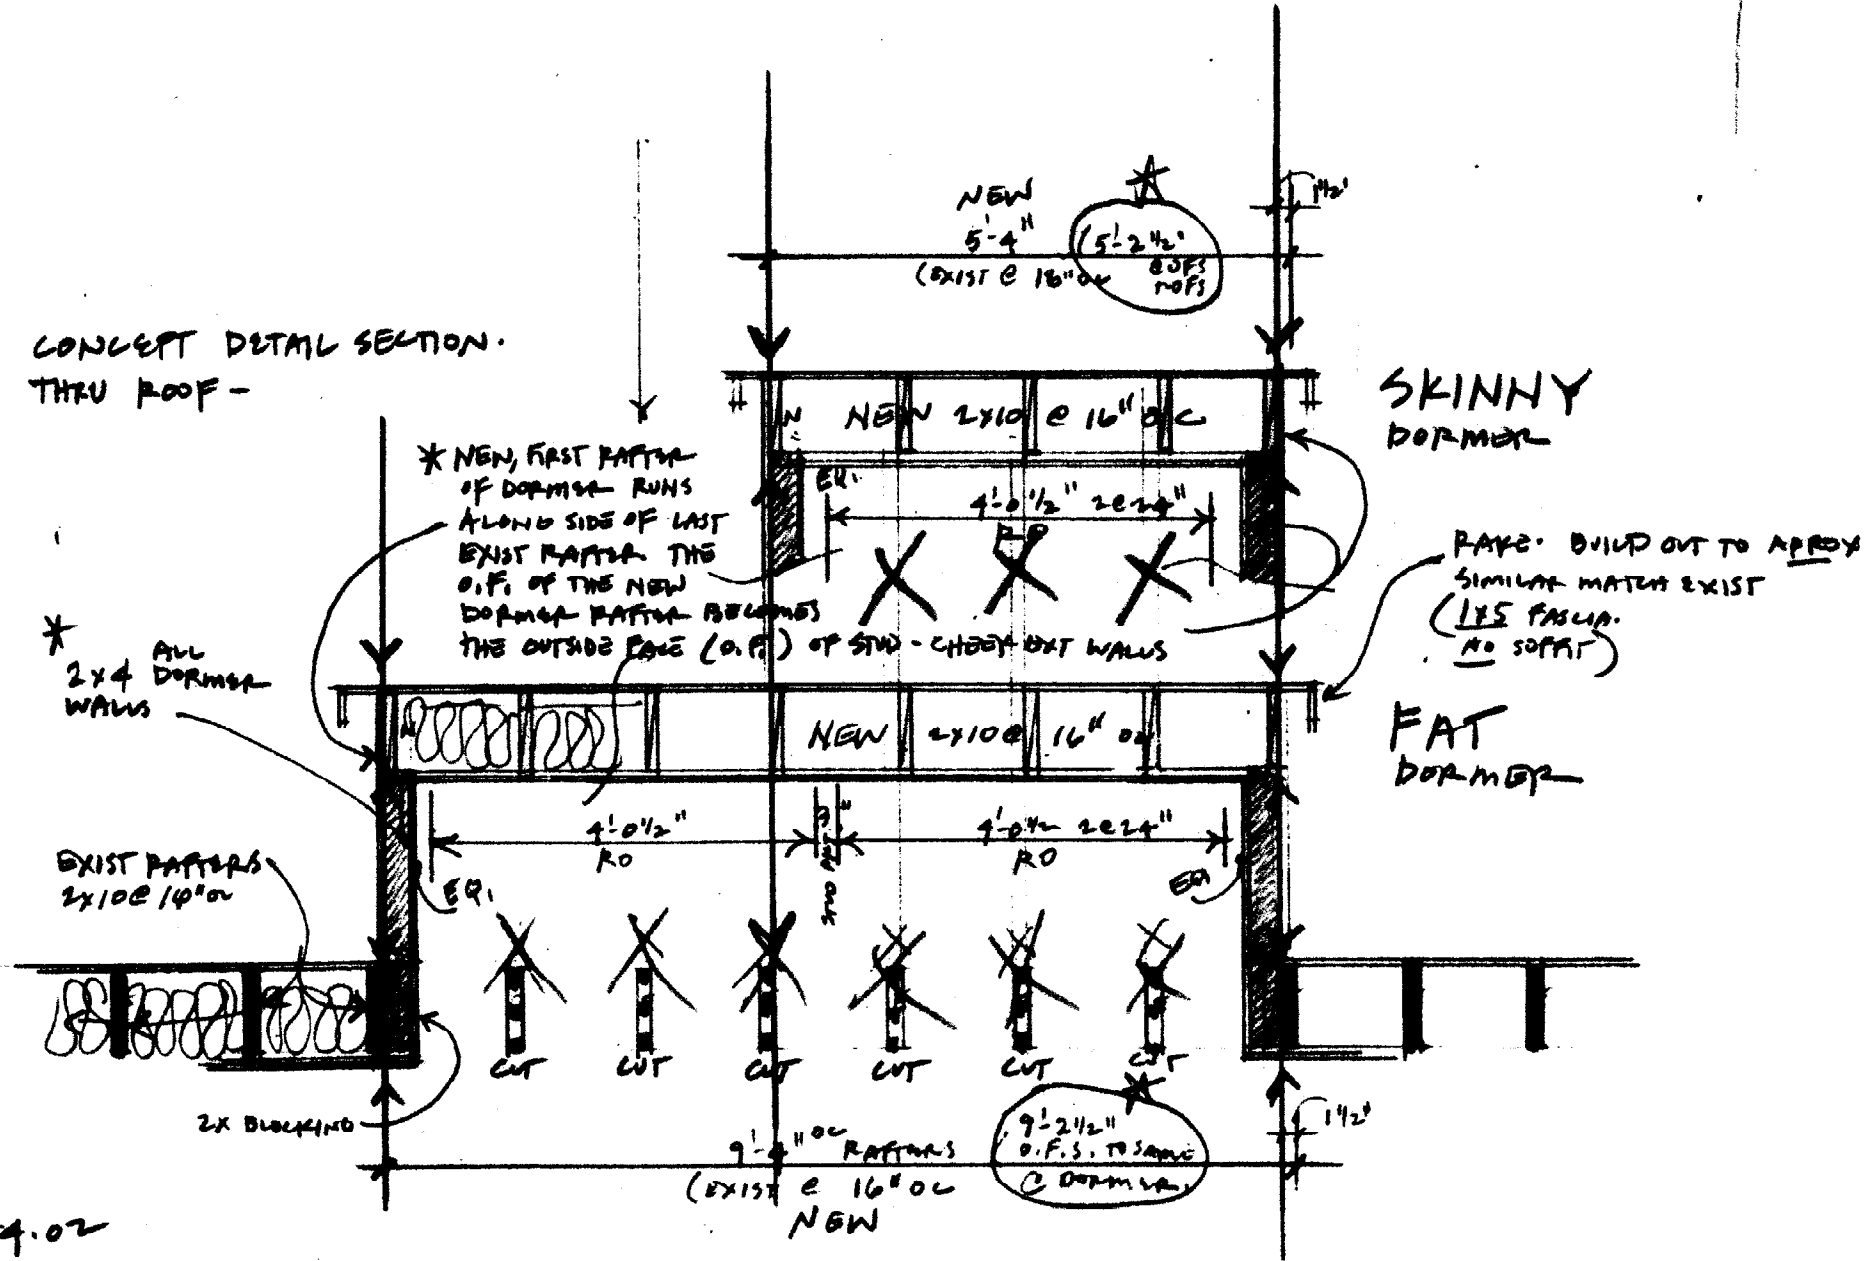 NEW
5'-4"
(EXIST @ 16" OC
(5'-2 1/2"
@ OFS
TOFS
1 1/2"
CONCEPT DETAIL SECTION.
THRU ROOF -
SKINNY
DORMER
N NEW 2x10 @ 16" O C
EQ.
4'-0 1/2" 2@24"
RO
* NEW, FIRST RAFTER
OF DORMER RUNS
ALONG SIDE OF LAST
EXIST RAFTER THE
O.F. OF THE NEW
DORMER RAFTER BECOMES
THE OUTSIDE FACE (O.F.) OF STUD - CHEEK EXT WALLS
RAKE. BUILD OUT TO APROX
SIMILAR MATCH EXIST
(1x5 FASCIA.
NO SOFFIT)
*
ALL
2x4 DORMER
WALLS
N
NEW 2x10 @ 16" OC
FAT
DORMER
4'-0 1/2"
RO
STUD
4'-0 1/2 2@24"
RO
EQ.
EQ
EXIST RAFTERS
2x10 @ 16" OC
CUT
CUT
CUT
CUT
CUT
CUT
2x BLOCKING
9'-4" OC RAFTERS
(EXIST @ 16" OC
NEW
9'-2 1/2"
O.F.S. TO SAME
@ DORMER.
1 1/2"
4.02